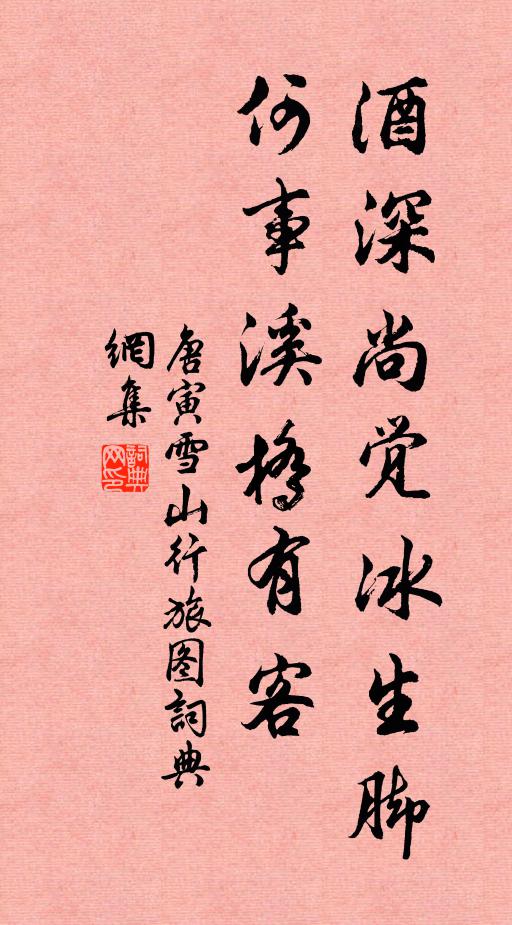 酒深尚觉冰生脚
何事溪橋有客
唐寅雪山行旅图詞典
網集
詞典网印